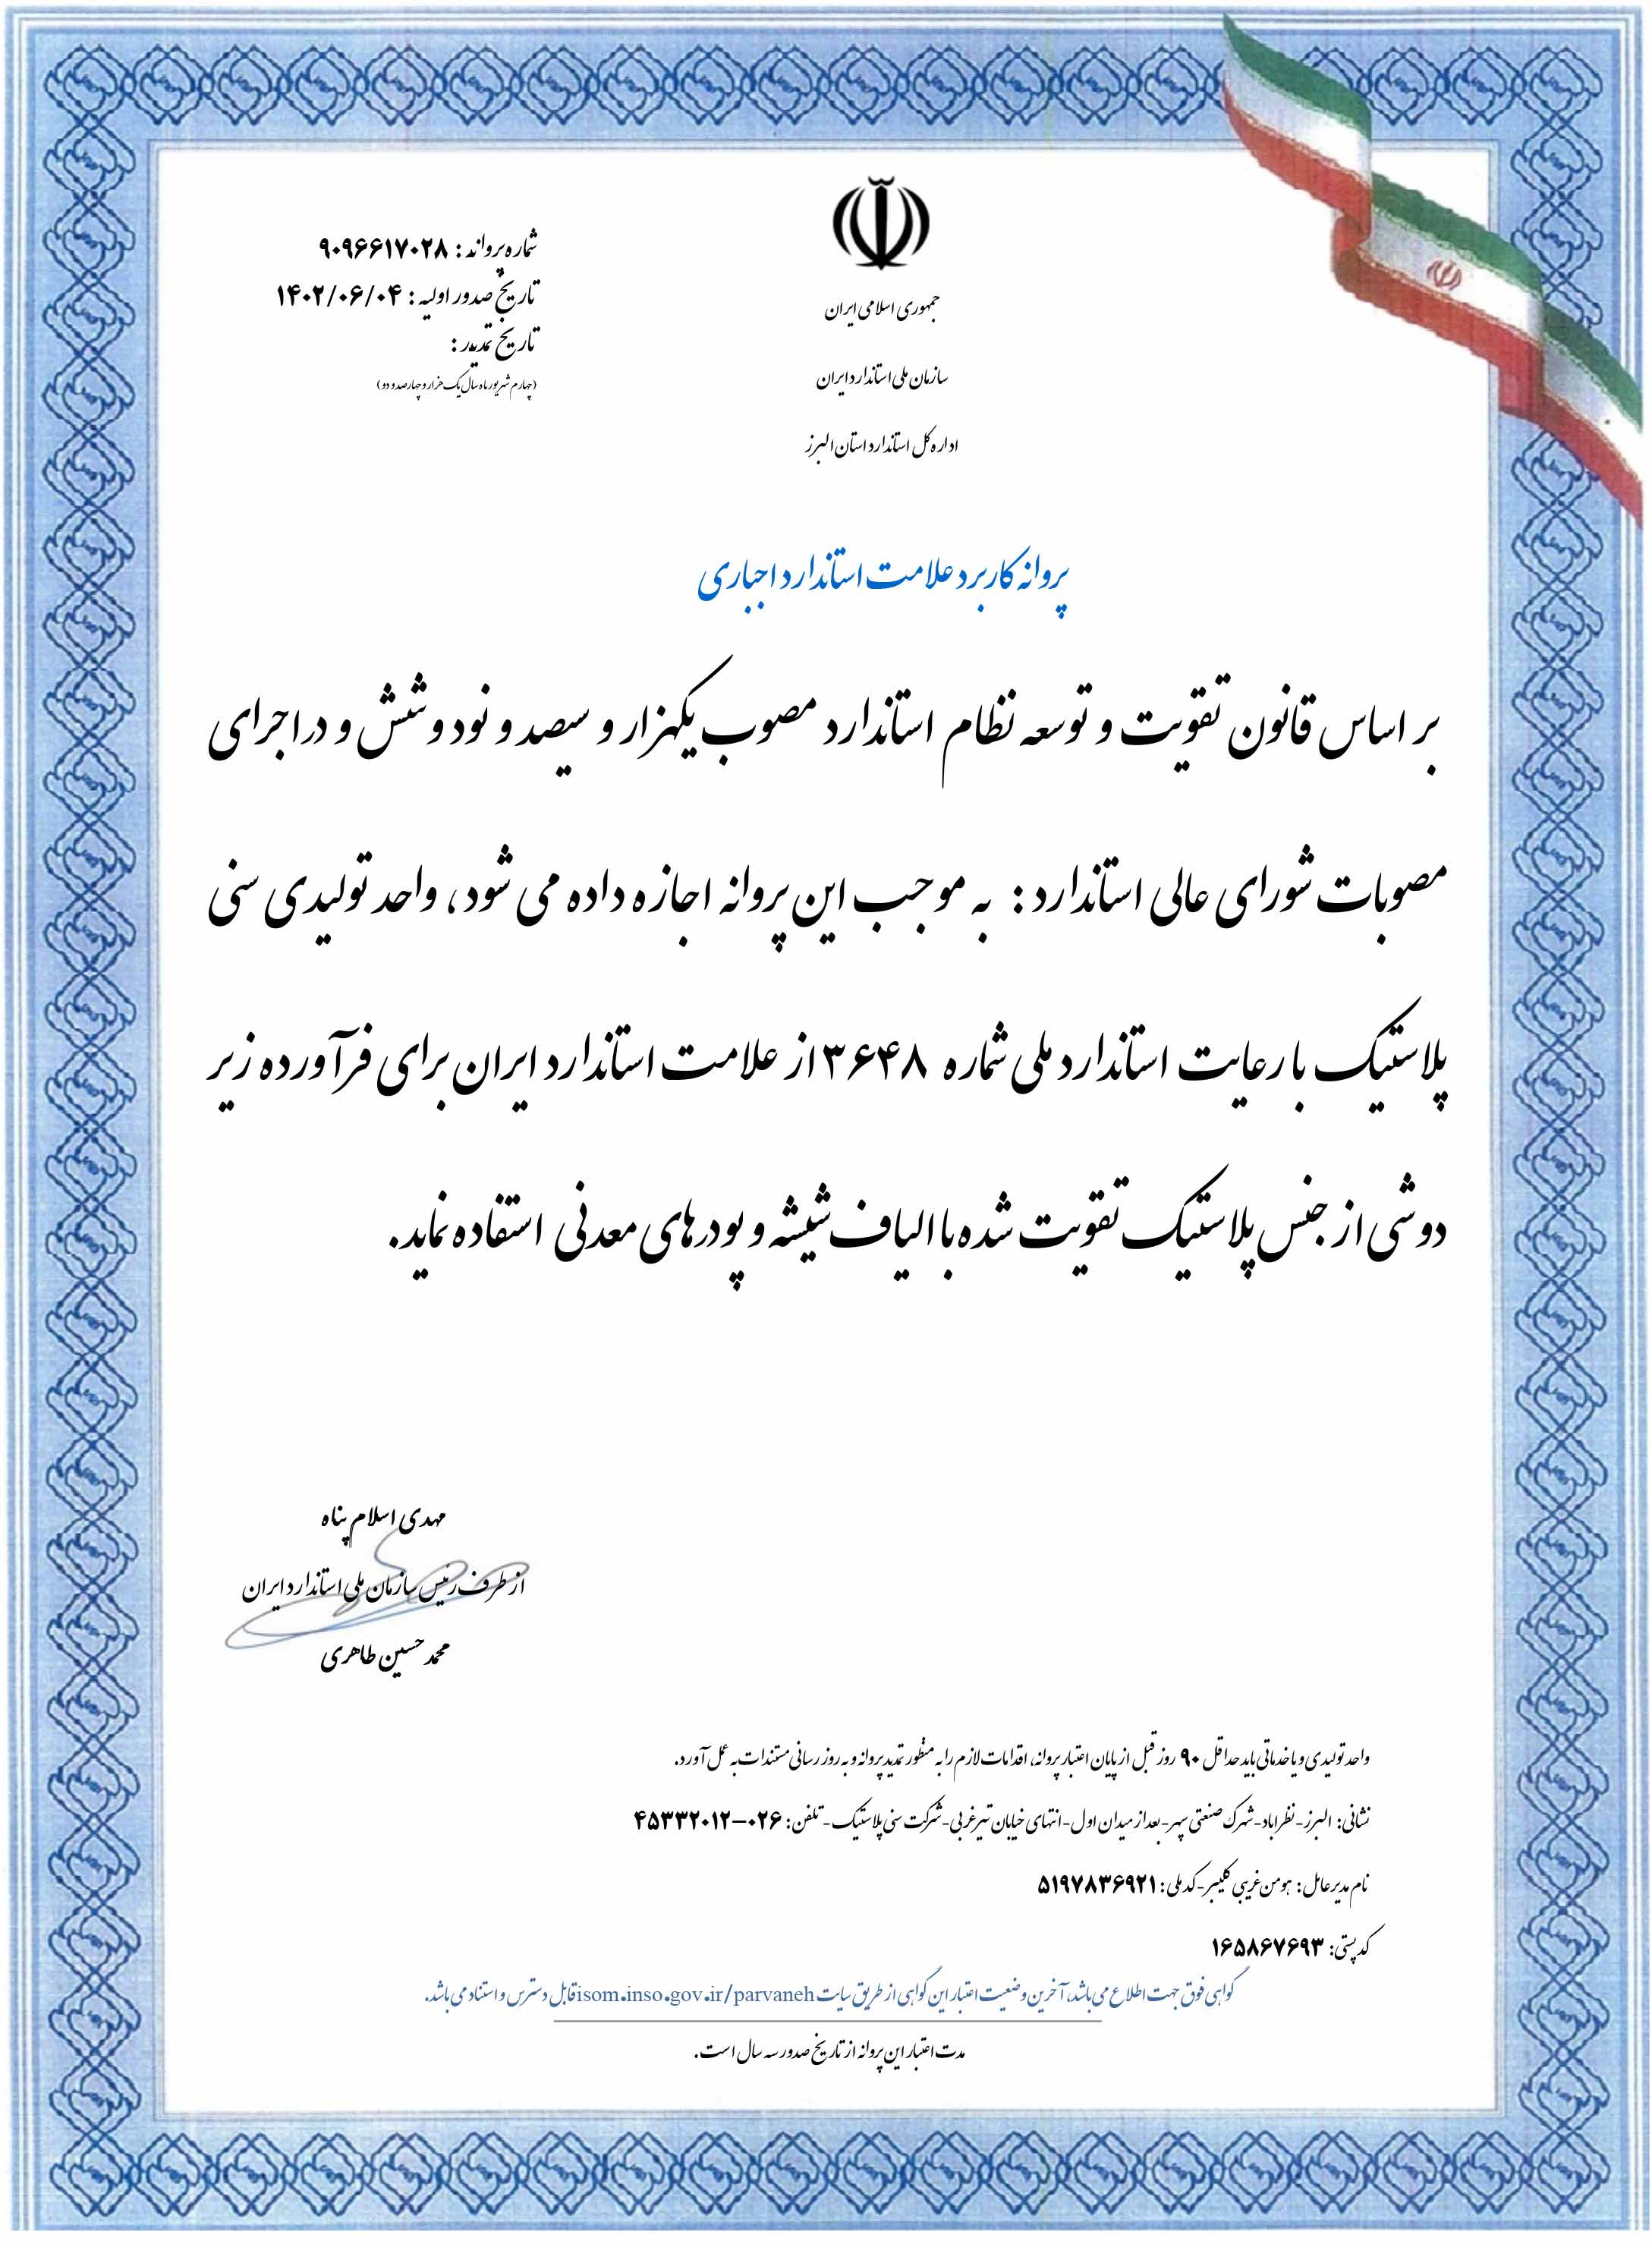 جمهوری اسلامی ایران
سازمان ملی استاندارد ایران
اداره کل استاندارد استان البرز
شماره پروانه : ۹۰۹۶۶۱۷۰۲۸
تاریخ صدور اولیه : ۱۴۰۲/۰۶/۰۴
تاریخ تمدید :
(چهارم شهریور ماه سال یک هزار و چهارصد و دو)
پروانه کاربرد علامت استاندارد اجباری
بر اساس قانون تقویت و توسعه نظام استاندارد مصوب یکهزار و سیصد و نود و شش و در اجرای
مصوبات شورای عالی استاندارد : به موجب این پروانه اجازه داده می شود، واحد تولیدی سنی
پلاستیک با رعایت استاندارد ملی شماره ۳۶۴۸ از علامت استاندارد ایران برای فرآورده زیر
دوشی از جنس پلاستیک تقویت شده با الیاف شیشه و پودرهای معدنی استفاده نماید.
مهدی اسلام پناه
از طرف رئیس سازمان ملی استاندارد ایران
محمد حسین طاهری
واحد تولیدی و یا خدماتی باید حداقل ۹۰ روز قبل از پایان اعتبار پروانه، اقدامات لازم را به منظور تمدید پروانه و به روز رسانی مستندات به عمل آورد.
نشانی: البرز - نظراباد - شهرک صنعتی سپهر - بعد از میدان اول - انتهای خیابان تیر غربی - شرکت سنی پلاستیک - تلفن: ۰۲۶–۴۵۳۳۲۰۱۲
نام مدیرعامل: هومن غریبی کلیبر - کد ملی: ۵۱۹۷۸۳۶۹۲۱
کد پستی: ۱۶۵۸۶۷۶۹۳
گواهی فوق جهت اطلاع می‌باشد، آخرین وضعیت اعتبار این گواهی از طریق سایت isom.inso.gov.ir/parvaneh قابل دسترس و استناد می‌باشد.
مدت اعتبار این پروانه از تاریخ صدور سه سال است.